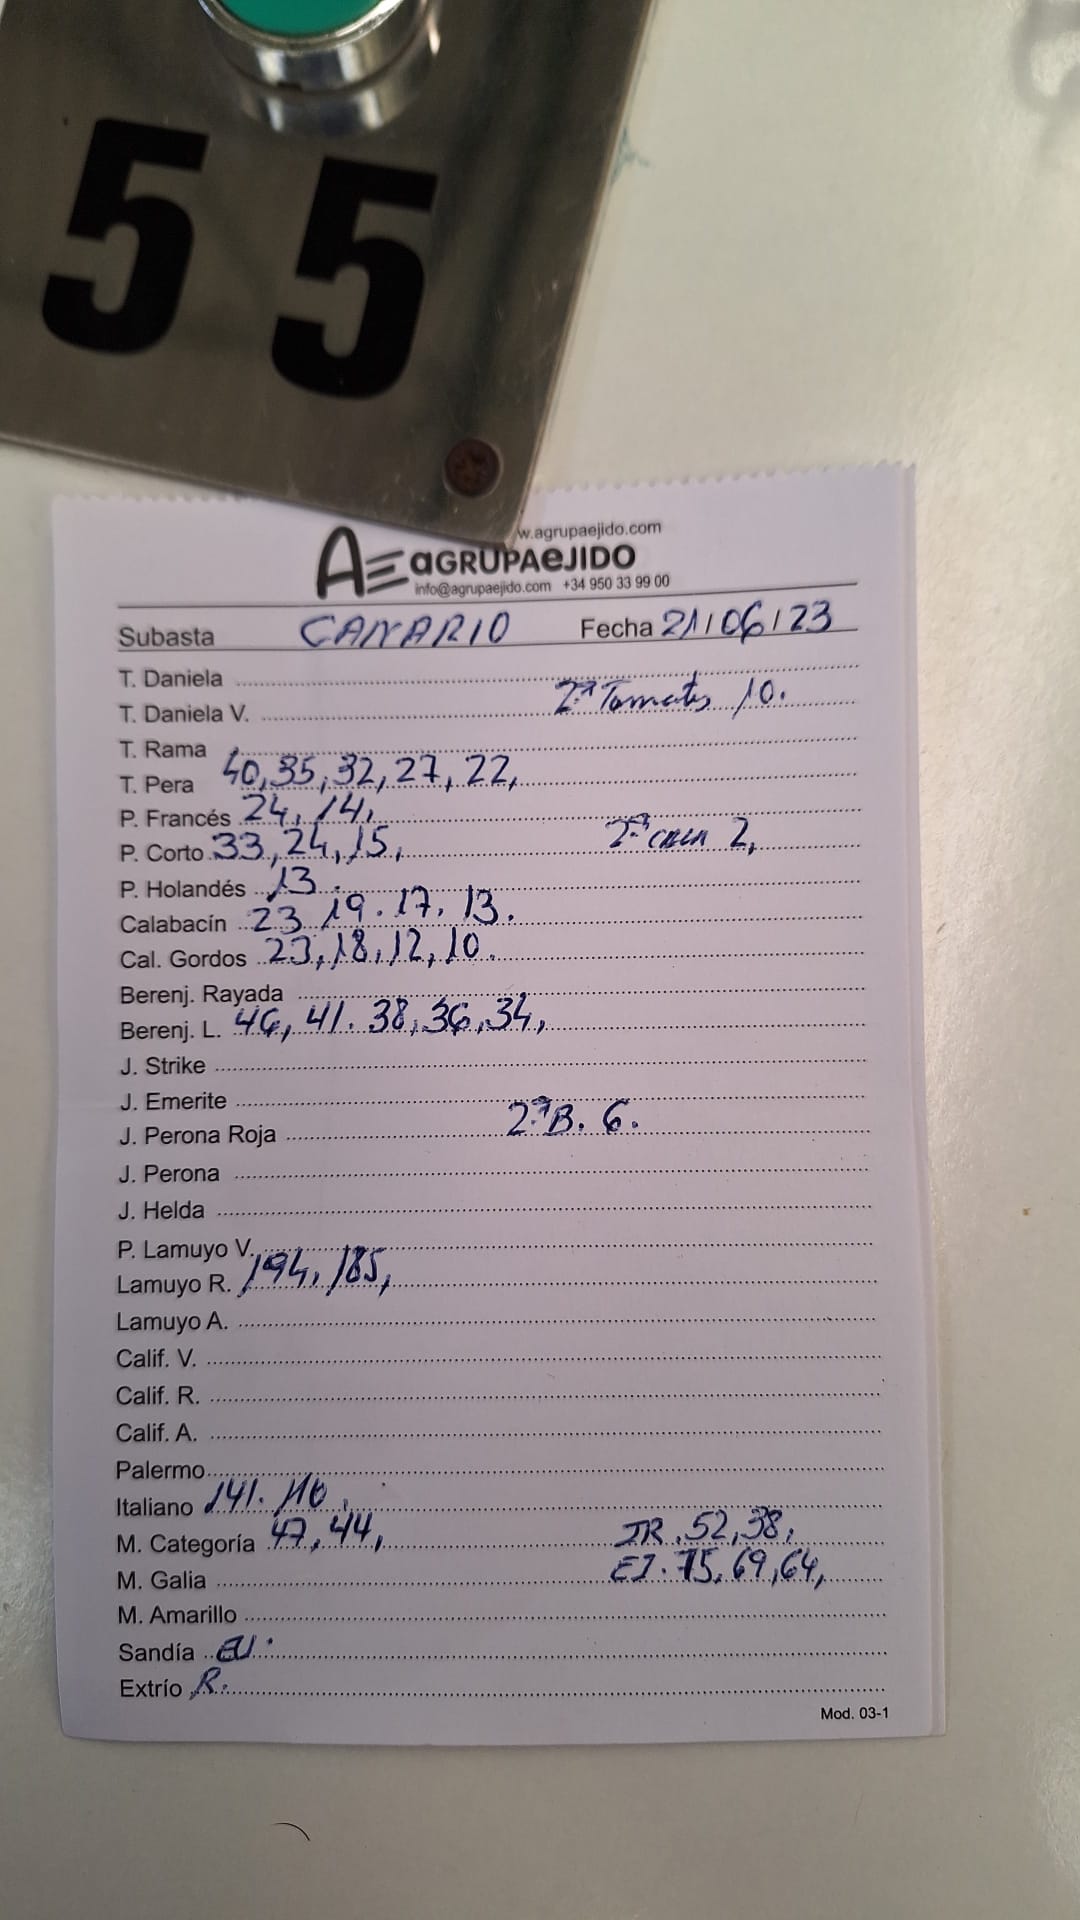 55
w.agrupaejido.com
AE aGRUPAeJIDO
info@agrupaejido.com +34 950 33 99 00
Subasta CANARIO Fecha 21/06/23
T. Daniela
T. Daniela V. 2ª Tomates 10.
T. Rama
T. Pera 40, 35, 32, 27, 22,
P. Francés 24, 14,
P. Corto 33, 24, 15, 2ª 2,
P. Holandés 13.
Calabacín 23 19. 17. 13.
Cal. Gordos 23, 18, 12, 10.
Berenj. Rayada
Berenj. L. 46, 41. 38, 36, 34,
J. Strike
J. Emerite
J. Perona Roja 2ª B. 6.
J. Perona
J. Helda
P. Lamuyo V.
Lamuyo R. 194, 185,
Lamuyo A.
Calif. V.
Calif. R.
Calif. A.
Palermo
Italiano 141.
M. Categoría 47, 44, 52, 38,
M. Galia 75, 69, 64,
M. Amarillo
Sandía
Extrío R.
Mod. 03-1